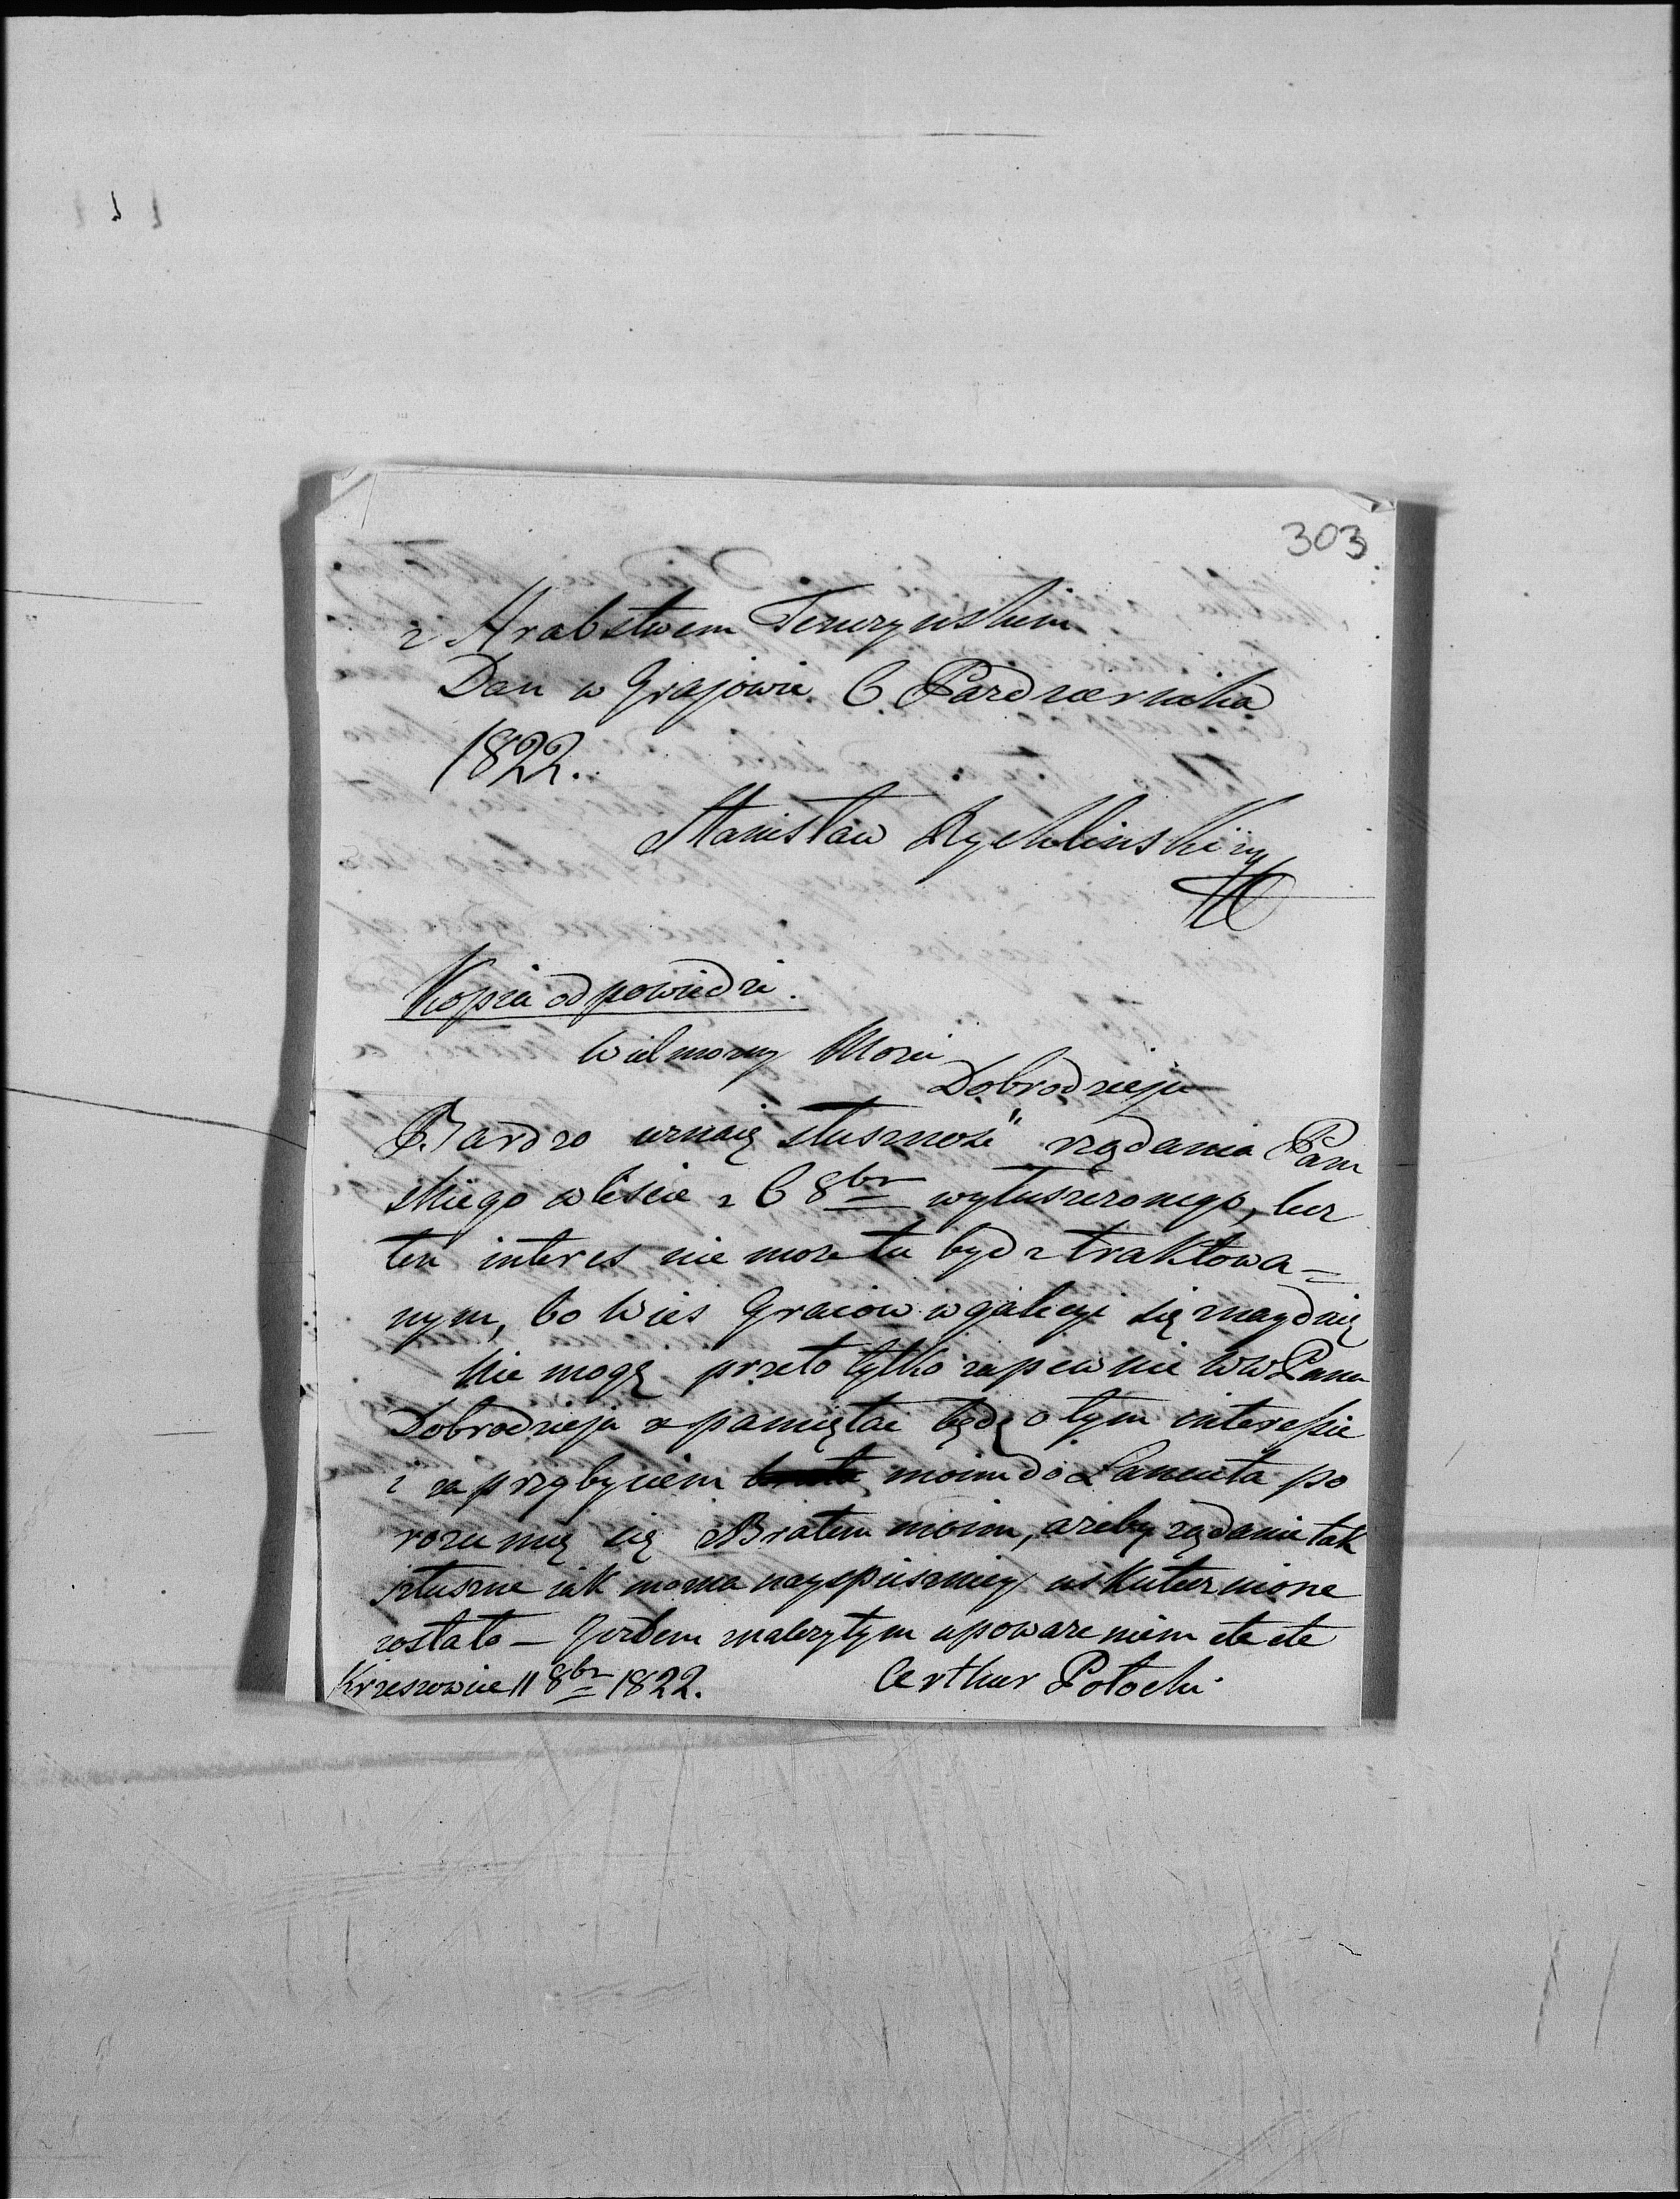 303
z Hrabstwem Tenczynskiem
Dan w Grajowie 6 Pazdziernika
1822.
Stanisław Rychlinski
Kopia odpowiedzi.
Wielmozny Mosci
Dobrodzieju
Bardzo uznaię słusznosć rządania Pan
skiego w liscie z 6 8br wyłuszczonego, lecz
ten interes nie może tu bydz traktowa=
nym, bo Wies Graiow w galicyi się znaydnię
Nie mogę przeto tylko zapewnic WWPana
Dobrodzieja ze pamiętac będę o tym interesie
i za przybyciem moim do Lancuta po
rozumię się z Bratem moim, azeby rządanie tak
słuszne iak mozna nayspieszniey uskutecznione
zostało — Jestem z nalezytym upowazeniem etc etc
Krzeszowice 11 8br 1822. Arthur Potocki